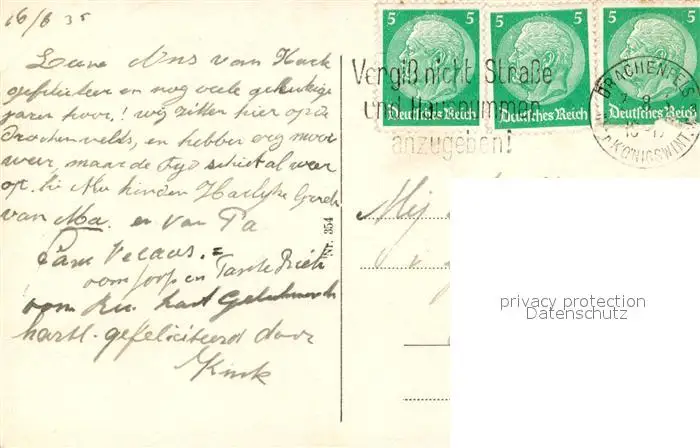 16/8 35
Lieve Ans van Harte
gefeliciteer en nog veele gelukkige
jaren hoor! wij zitten hier op de
Drachenvelds, en hebben erg mooi
weer, maar de tijd schiet al weer
op. Nu kinden Hartelijke Groeten
van Ma. en van Pa
oom Joop en Tante
oom hart Gelukwensch
hartl. gefeliciteerd door
Nr. 354
5 5
5 5
5 5
Deutsches Reich
Deutsches Reich
Deutsches Reich
Vergiß nicht Straße
und Hausnummer
anzugeben!
DRACHENFELS
KÖNIGSWINTER
Mej
privacy protection
Datenschutz